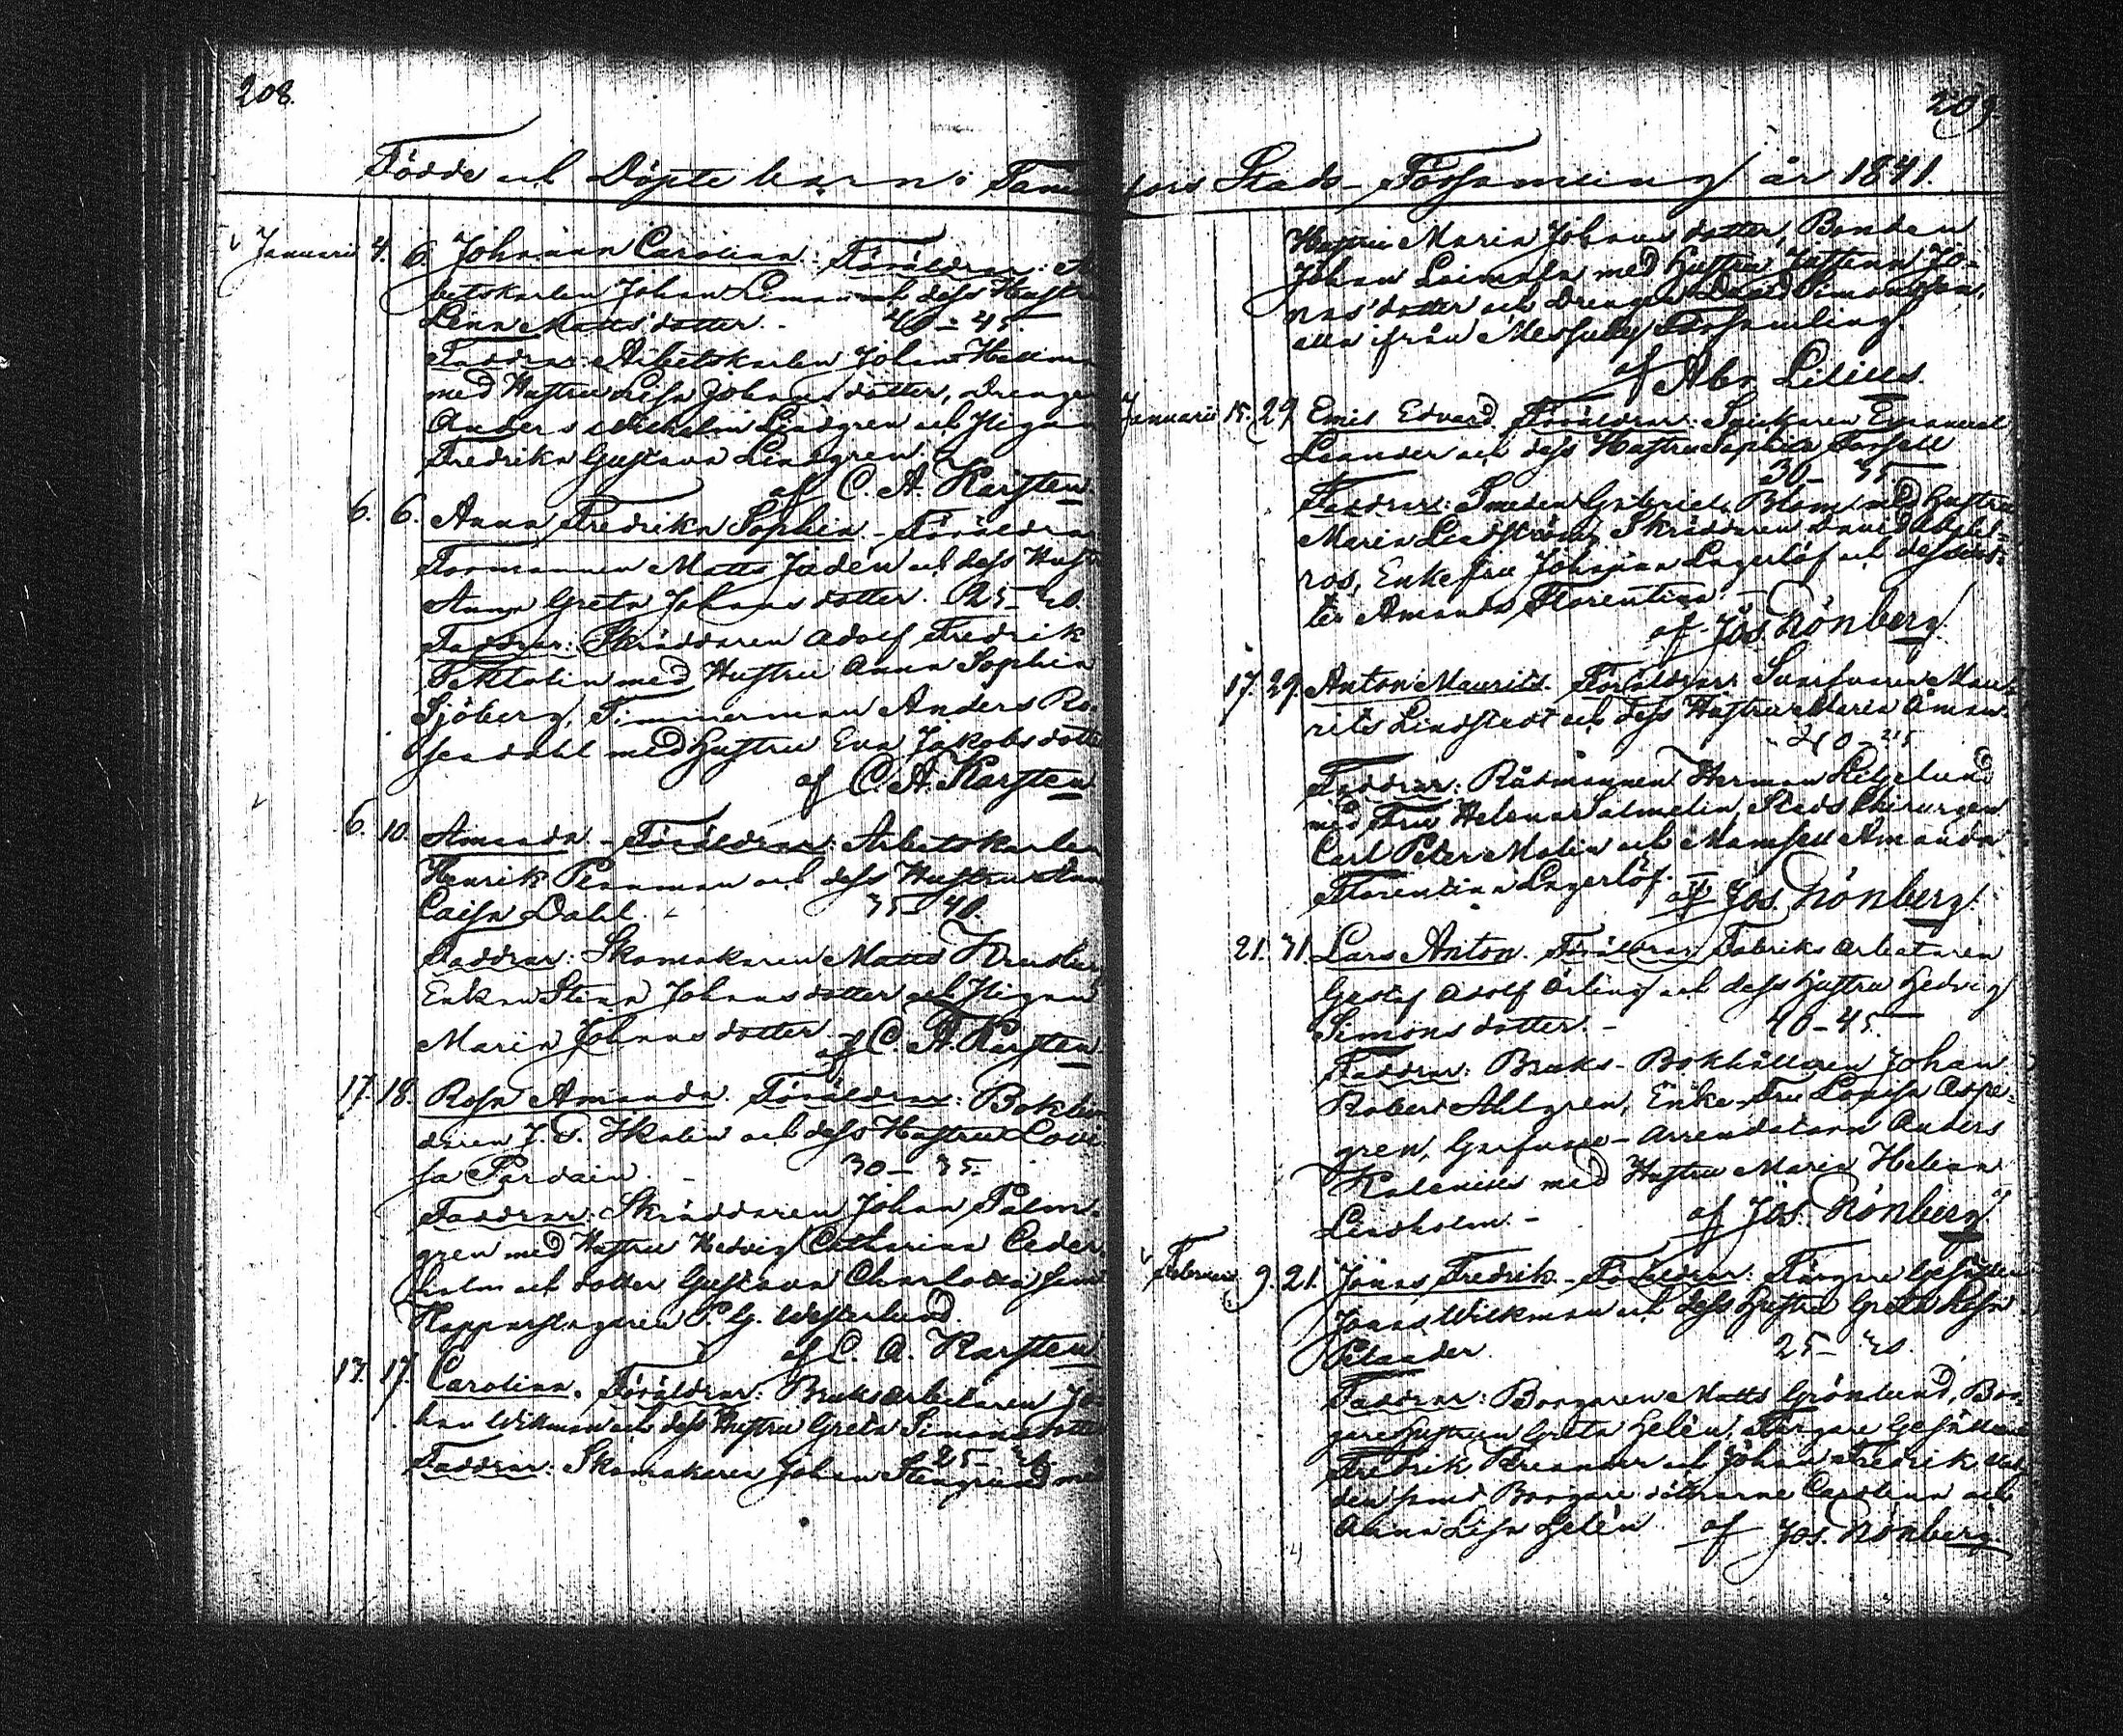 208.
Födde och Döpte barn i Tam
Januari 4. 6. Johanna Carolina: Föräldrar: Ar
betskarlen Johan Liman och dess Hustru
Lena Mattsdotter. - 40 - 45.
Faddrar: Arbetskarlen Johan Hallman
med Hustru Lisa Johansdotter, Drengen
Anders Wilhelm Lindgren och Pigan
Fredrika Gustava Lindgren.
af C. A. Karsten.
6. 6. Anna Fredrika Sophia - Föräldrar
Formannen Matts Juden och dess Hust
Anna Greta Johansdotter. 25 - 30.
Faddrar: Skräddaren Adolf Fredrik
med Hustru Anna Sophia
Sjöberg, Timmerman Anders Ro-
sendahl med Hustru Eva Jakobsdotter
af C. A. Karsten
6. 10. Amanda. - Föräldrar: Arbetskarlen
Henrik Penaman och dess Hustru Ann
Caisa Dahl. 35 40.
Faddrar: Skomakaren Matts
Enkan Stina Johansdotter och Pigan
Maria Johansdotter. -
af C. A. Karsten
17. 18. Rosa Amanda. Föräldrar: Bokbin
daren J. F. Skolin och dess Hustru Lovi
sa Pardain. - 30 - 35.
Faddrar: Skräddaren Johan Palm-
gren med Hustru Hedvig Catharina Ceder-
holm och dotter Gustava Charlotta samt
Kopparslagaren P. G. Westerlund.
af C. A. Karsten
13. 17. Carolina. Föräldrar: Bruksarbetaren Jo
han Wikman och dess Hustru Greta Simonsdotter
25 - 30.
Faddrar: Skomakaren Johan Stengrund med
209.
fors Stads-Församling år 1841.
Hustru Maria Johansdotter, Bonden
Johan med Hustru Justina Jo-
nasdotter och Drengen David Simonsson,
alla ifrån Messuby Församling.
af Abr. Lilius.
Januari 15. 29. Emil Edvard. Föräldrar: Snickaren Emanuel
Leander och dess Hustru Sophia Forsell
30 - 35.
Faddrar: Smeden Gabriel Blom med Hustru
Maria Lindström, Skräddaren David Abfel-
ros, Enkefru Johanna Lagerlöf och dess dot-
ter Amanda Florentina. -
af Jos. Rönberg.
17. 29. Anton Maurits. Föräldrar: Mau-
rits Lindstedt och dess Hustru Maria Åman.
20 - 25
Faddrar: Rådmannen Herman Liljelund
med Fru Helena Salmelin, Stads Chirurgen
Carl Peter Malin och Mamsell Amanda
Florentina Lagerlöf. -
af Jos. Rönberg.
21. 31. Lars Anton. Föräldrar: Fabriks arbetaren
Gustaf Adolf Örling och dess Hustru Hedvig
Simonsdotter. - 40 - 45.
Faddrar: Bruks-Bokhållaren Johan
Robert Ahlgren, Enke-Fru Lovisa Aspe-
gren, Arrendatorn Anders
Kalenius med Hustru Maria Helena
Lindholm. - af Jos. Rönberg.
Februari 9. 21. Jonas Fredrik. - Föräldrar: Färgare Gesällen
Jonas Wilkman och dess Hustru Greta Lisa
Petander. 25 - 30.
Faddrar: Borgaren Matts Grönlund, Bor-
gare hustrun Greta Helén, Färgare Gesällerne
Fredrik och Johan Fredrik
den samt Borgare döttrarne Carolina och
Anna Lisa Helén. af Jos. Rönberg.